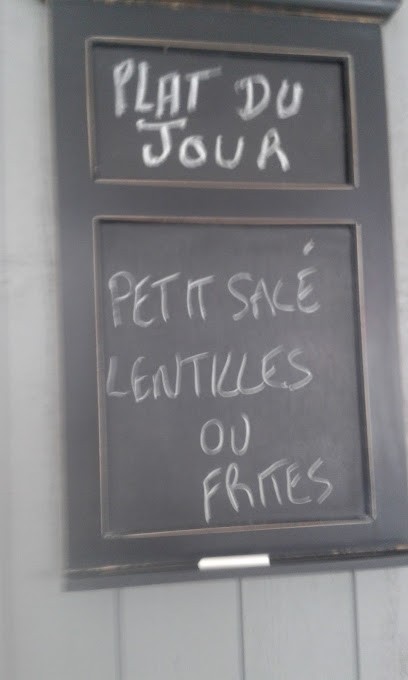 PLAT DU
JOUR
PETIT SALÉ
LENTILLES
OU
FRITES